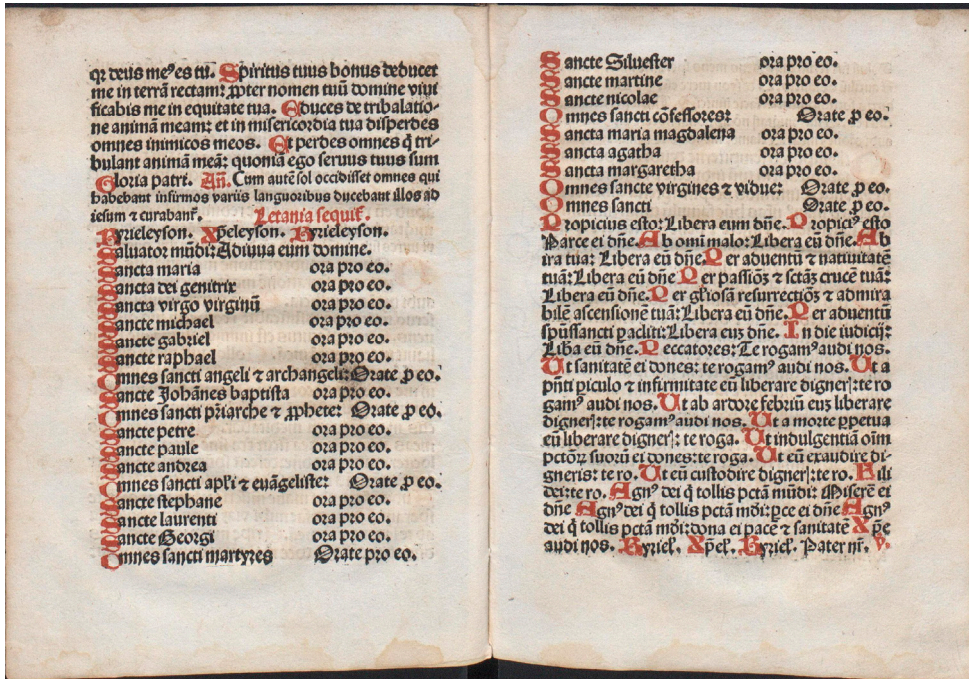 qꝛ deus meꝰ es tu. Spiritus tuus bonus deducet
me in terrã rectam: ꝓpter nomen tuũ domine viui
ficabis me in equitate tua. Educes de tribalatio-
ne animã meam: et in misericordia tua disperdes
omnes inimicos meos. Et perdes omnes q̃ tri-
bulant animã meã: quoniã ego seruus tuus sum
Gloria patri. Añ. Cum autẽ sol occidisset omnes qui
habebant infirmos variis languoribus ducebant illos ad
iesum ⁊ curabant᷑. Letania sequit᷑.
Kyrieleyson. Xp̃eleyson. Kyrieleyson.
Saluator mũdi: Adiuua eum domine.
Sancta maria ora pro eo.
Sancta dei genitrix ora pro eo.
Sancta virgo virginũ ora pro eo.
Sancte michael ora pro eo.
Sancte gabriel ora pro eo.
Sancte raphael ora pro eo.
Omnes sancti angeli ⁊ archangeli: Orate ꝓ eo.
Sancte Johãnes baptista ora pro eo.
Omnes sancti pr̃iarche ⁊ ꝓphete: Orate ꝓ eo.
Sancte petre ora pro eo.
Sancte paule ora pro eo.
Sancte andrea ora pro eo.
Omnes sancti apl̃i ⁊ euãgeliste: Orate ꝓ eo.
Sancte stephane ora pro eo.
Sancte laurenti ora pro eo.
Sancte Georgi ora pro eo.
Omnes sancti martyres Orate pro eo.
Sancte Siluester ora pro eo.
Sancte martine ora pro eo.
Sancte nicolae ora pro eo.
Omnes sancti cõfessores: Orate ꝓ eo.
Sancta maria magdalena ora pro eo.
Sancta agatha ora pro eo.
Sancta margaretha ora pro eo.
Omnes sancte virgines ⁊ vidue: Orate ꝓ eo.
Omnes sancti Orate ꝓ eo.
Propicius esto: Libera eum dñe. Propiciꝰ esto
Parce ei dñe. Ab omĩ malo: Libera eũ dñe. Ab
ira tua: Libera eũ dñe. Per aduentũ ⁊ natiuitatẽ
tuã: Libera eũ dñe Per passiõꝫ ⁊ sctãꝫ crucẽ tuã:
Libera eũ dñe. Per gl̃iosã resurrectiõꝫ ⁊ admira
bilẽ ascensionẽ tuã: Libera eũ dñe. Per aduentũ
sp̃ussancti ꝑacliti: Libera euꝫ dñe. In die iudicij:
Lib̃a eũ dñe. Peccatores: Te rogamꝰ audi nos.
Ut sanitatẽ ei dones: te rogamꝰ audi nos. Ut a
p̃nti ꝑiculo ⁊ infirmitate eũ liberare digner}: te ro
gamꝰ audi nos. Ut ab ardore febriũ euꝫ liberare
digner}: te rogamꝰ audi nos. Ut a morte ꝑpetua
eũ liberare digner}: te roga. Ut indulgentiã oĩm
pctõꝝ suorũ ei dones: te roga. Ut eũ exaudire di-
gneris: te ro. Ut eũ custodire digner}: te ro. Fili
dei: te ro. Agnꝰ dei q̃ tollis pctã mũdi: Miserẽ ei
dñe Agnꝰ dei q̃ tollis pctã mõi: ꝑce ei dñe Agnꝰ
dei q̃ tollis pctã mõi: dona ei pacẽ ⁊ sanitatẽ Xp̃e
audi nos. Kyriel̃. Xp̃el̃. Kyriel̃. Pater nr̃. V.